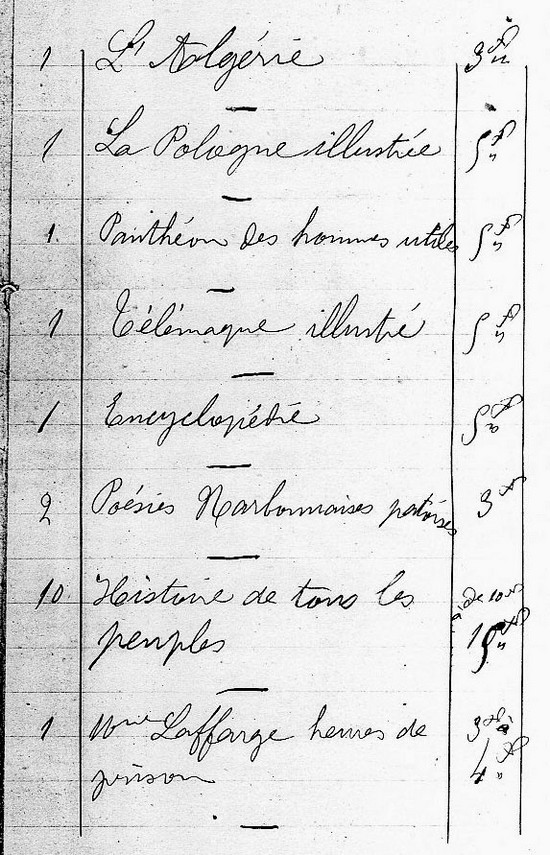 1 L'Algérie 3 f "
1 La Pologne illustrée 5 f "
1. Panthéon des hommes utiles 5 f "
1 Télémaque illustré 5 f "
1 Encyclopédie 5 f "
2 Poésies Narbonnaises patoises 3 f
10. Histoire de tous les
peuples
1 Mme Laffarge heures de 3 f à
prison 4 f "